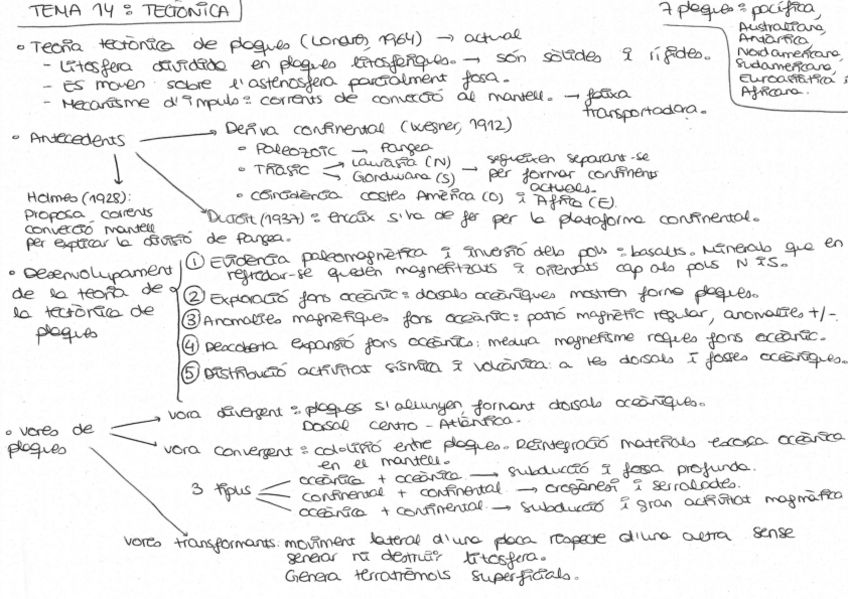 TEMA 14: TECTÒNICA
7 plaques: pacífica,
Australiana,
Antàrtica,
Nordamericana,
Sudamericana,
Euroasiàtica i
Africana.
• Teoria tectònica de plaques (Londres, 1964) → actual
- Litosfera dividida en plaques litosfèriques. → són sòlides i rígides.
- Es moven sobre l'astenosfera parcialment fosa.
- Mecanisme d'impuls: corrents de convecció al mantell. → faixa
transportadora.
• Antecedents
Deriva continental (Wegner, 1912)
• Paleozoic → Pangea
• Triàsic
Lauràsia (N)
Gondwana (S)
→ segueixen separant-se
per formar continents
actuals.
• Coincidència costes Amèrica (O) i Àfrica (E).
Holmes (1928):
proposa corrents
convecció mantell
per explicar la divisió de Pangea.
(1937): encaix s'ha de fer per la plataforma continental.
• Desenvolupament
de la teoria de
la tectònica de
plaques
① Evidència paleomagnètica i inversió dels pols: basalts. Minerals que en
refredar-se queden magnetitzats i orientats cap als pols N i S.
② Exploració fons oceànic: dorsals oceàniques mostren forma plaques.
③ Anomalies magnètiques fons oceànic: patró magnètic regular, anomalies +/-.
④ Descoberta expansió fons oceànics: mesura magnetisme roques fons oceànic.
⑤ Distribució activitat sísmica i volcànica: a les dorsals i fosses oceàniques.
• Vores de
plaques
→ vora divergent: plaques s'allunyen, formant dorsals oceàniques.
Dorsal centro-Atlàntica.
→ vora convergent: col·lisió entre plaques. Reintegració materials escorça oceànica
en el mantell.
3 tipus
oceànica + oceànica → subducció i fossa profunda.
continental + continental → orogènesi i serralades.
oceànica + continental → subducció i gran activitat magmàtica
vores transformants: moviment lateral d'una placa respecte d'una altra sense
generar ni destruir litosfera.
Genera terratrèmols superficials.